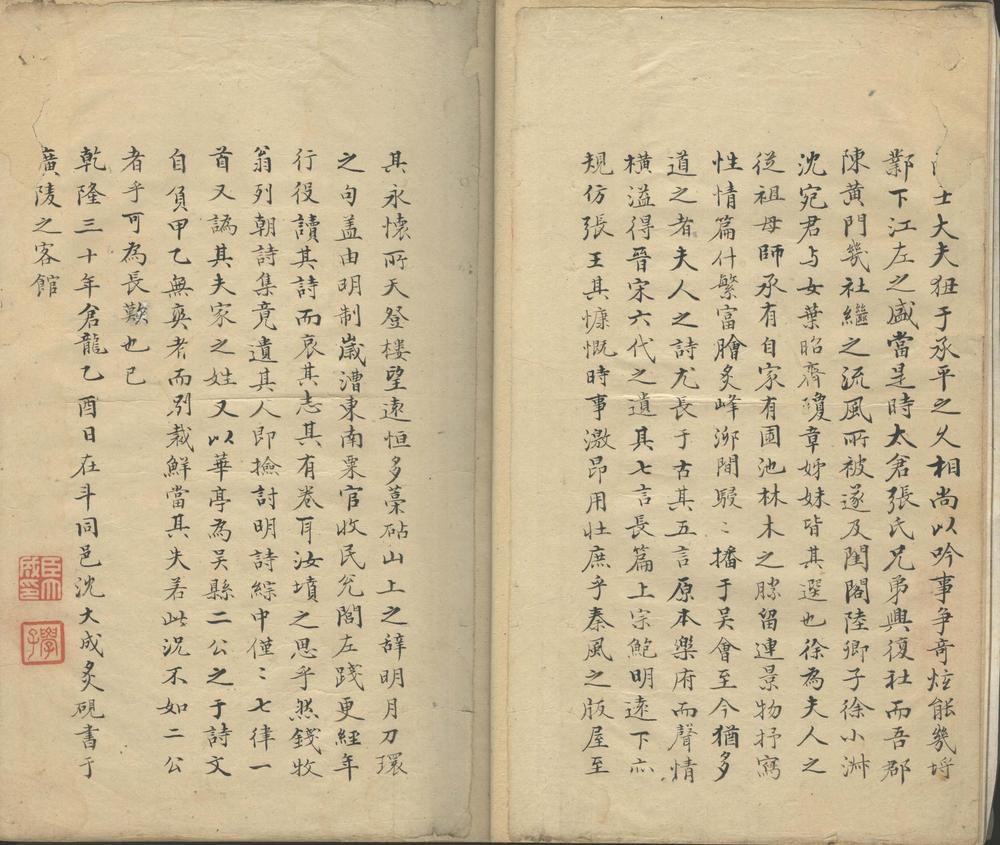 士大夫狃于承平之久相尚以吟事争奇炫能幾埒
鄴下江左之盛當是時太倉張氏兄弟興復社而吾郡
陳黃門幾社繼之流風所被遂及閨閣陸卿子徐小淑
沈宛君与女葉昭齊瓊章姊妹皆其選也徐為夫人之
從祖母師承有自家有園池林木之勝留連景物抒寫
性情篇什繁富膾炙峰泖閒駸〻播于吳會至今猶多
道之者夫人之詩尤長于古其五言原本樂府而聲情
橫溢得晉宋六代之遺其七言長篇上宗鮑明遠下亦
規仿張王其慷慨時事激昂用壯庶乎秦風之版屋至
其永懷所天登楼望遠恒多藁砧山上之辞明月刀環
之句盖由明制歲漕東南粟官收民兊閭左踐更經年
行役讀其詩而哀其志其有卷耳汝墳之思乎然錢牧
翁列朝詩集竟遺其人即撿討明詩綜中僅〻七律一
首又譌其夫家之姓又以華亭為吳縣二公之于詩文
自負甲乙無爽者而別裁鮮當其失若此況不如二公
者乎可為長歎也已
乾隆三十年倉龍乙酉日在斗同邑沈大成炙硯書于
廣陵之客館
臣大成印
學子